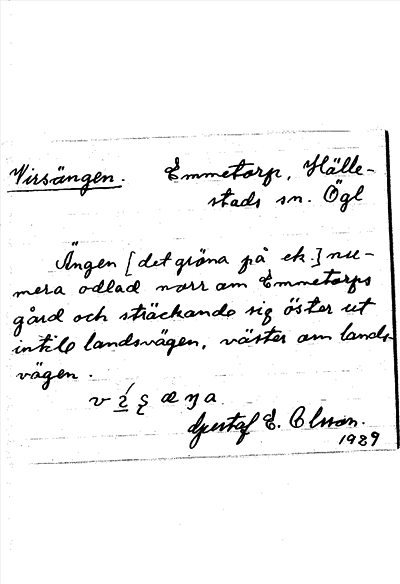 Virsängen. Emmetorp, Hälle-
stads sn. Ögl
Ängen [det gröna på ek.] nu-
mera odlad norr om Emmetorps
gård och sträckande sig öster ut
intill landsvägen, väster om lands-
vägen.
Gustaf E. Olsson.
1939